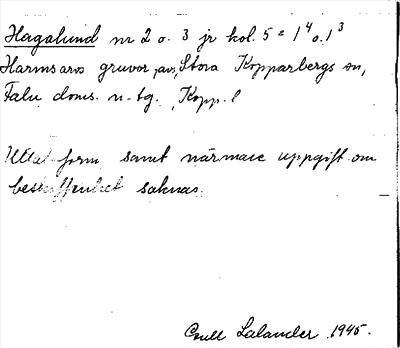 Hagalund nr 2 o. 3 jr kol 5 = 1⁴ o. 1³
Harmsarvs gruvor, av, Stora Kopparbergs sn,
Falu doms. n. tg. Kopp. l
Uttal, form samt närmare uppgift om
beskaffenhet saknas.
Lalander 1945.